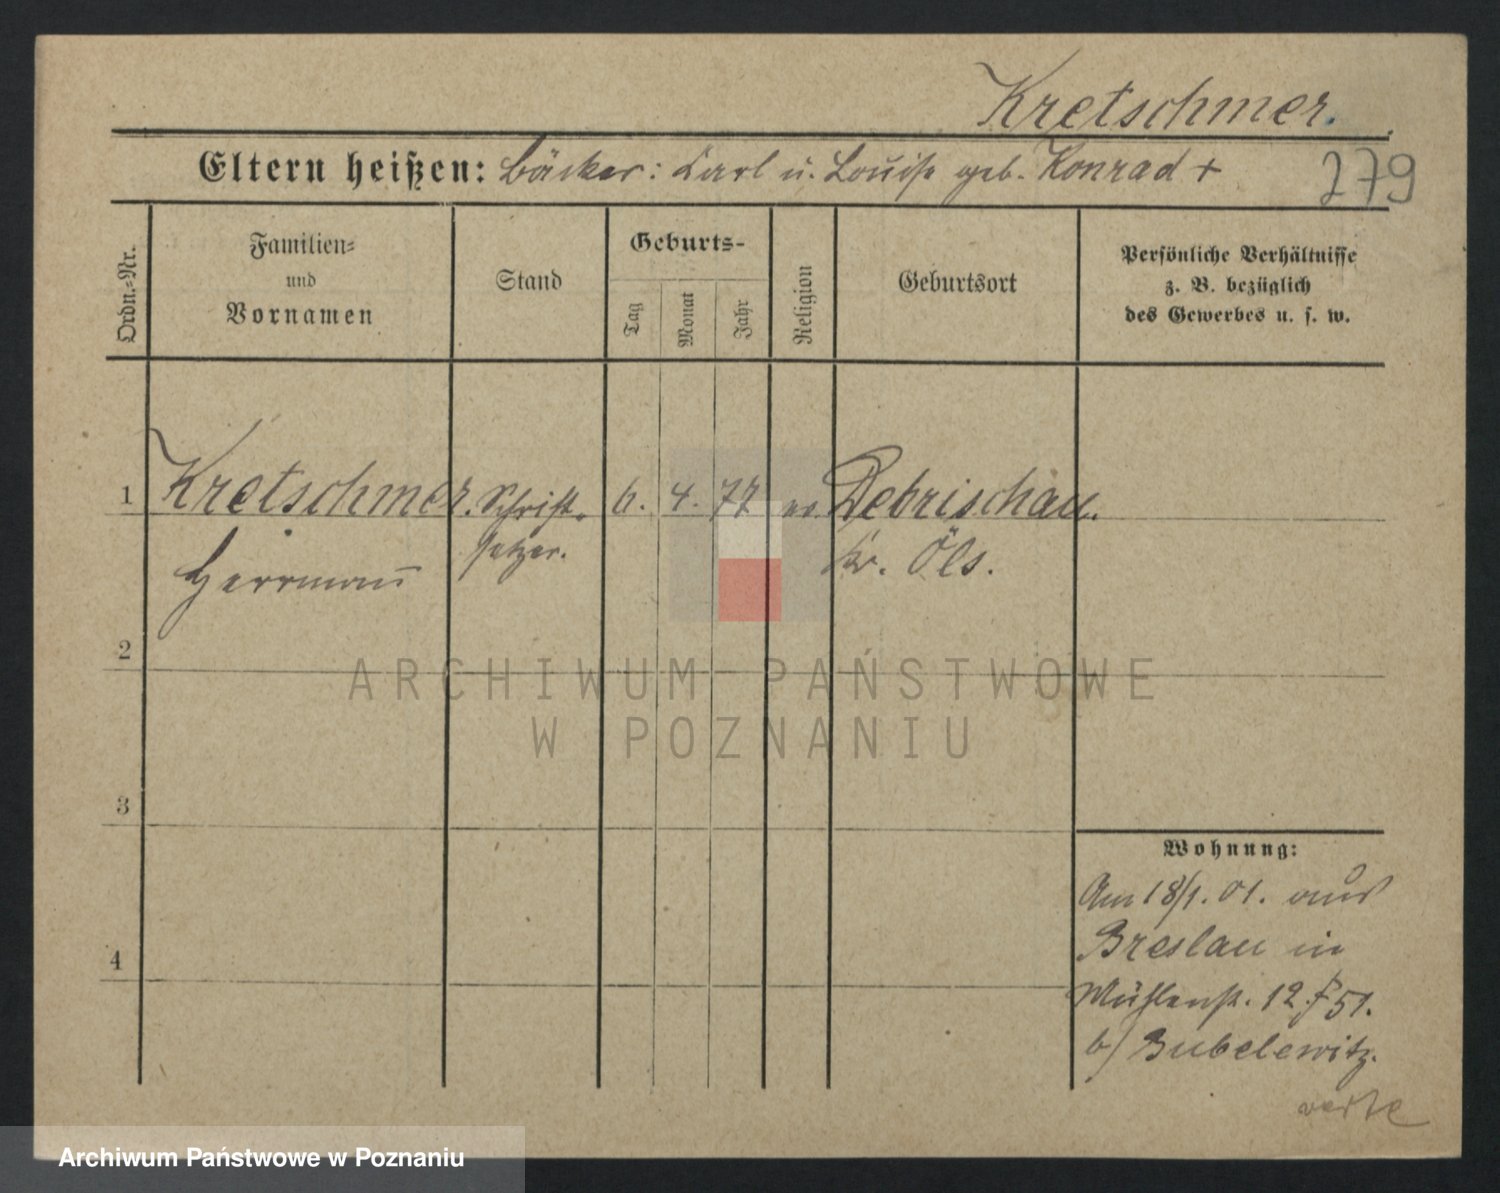 Kretschmer.
Eltern heißen: Bäcker: Carl u. Louise geb. Konrad +
279
Ordn.-Nr.
Familien-
und
Vornamen
Stand
Geburts-
Tag
Monat
Jahr
Religion
Geburtsort
Persönliche Verhältnisse
z. B. bezüglich
des Gewerbes u. s. w.
1 Kretschmer. Schrift- 6. 4. 77 ev. Debrischau.
Herrmann setzer. Kr. Öls.
2
3
4
Wohnung:
Am 18/1. 01. aus
Breslau in
Mühlenst. 12 51.
b/ Bubelewitz.
verte
ARCHIWUM PAŃSTWOWE
W POZNANIU
Archiwum Państwowe w Poznaniu